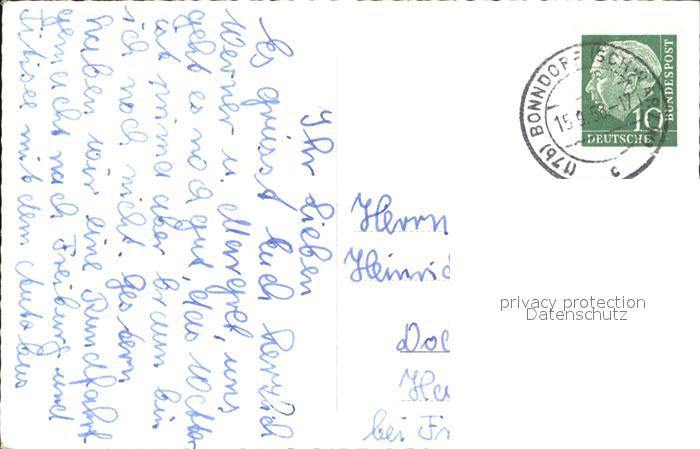 Ihr Lieben
Es grüsst Euch herzlich
Werner u. Margret, uns
geht es noch gut, das Wetter
ist prima aber braun bin
ich noch nicht. Gestern
haben wir eine Rundfahrt
gemacht nach Freiburg und
Titisee mit dem Autobus
Herrn
Heinric
Do
Ha
bei Fr
(17b) BONNDORF (SCHWARZW)
15.9.56.-17
c
10
DEUTSCHE
BUNDESPOST
privacy protection
Datenschutz